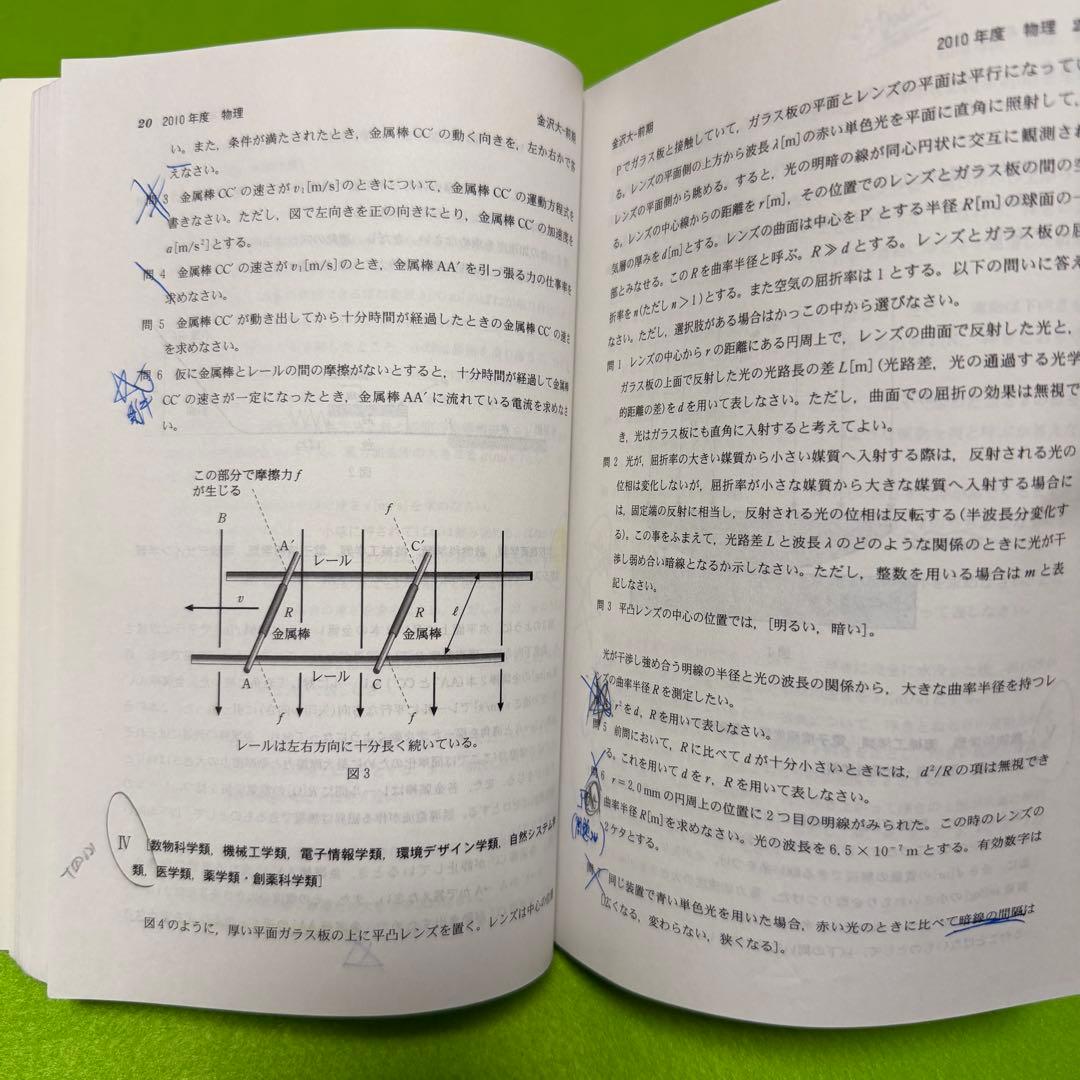 20 2010年度 物理
金沢大-前期
い。また，条件が満たされたとき，金属棒 CC′ の動く向きを，左か右かで答
えなさい。
問 3 金属棒 CC′ の速さが v₁[m/s]のときについて，金属棒 CC′ の運動方程式を
書きなさい。ただし，図で左向きを正の向きにとり，金属棒 CC′ の加速度を
a[m/s²]とする。
問 4 金属棒 CC′ の速さが v₁[m/s]のとき，金属棒 AA′ を引っ張る力の仕事率を
求めなさい。
問 5 金属棒 CC′ が動き出してから十分時間が経過したときの金属棒 CC′ の速さ
を求めなさい。
問 6 仮に金属棒とレールの間の摩擦がないとすると，十分時間が経過して金属棒
CC′ の速さが一定になったとき，金属棒 AA′ に流れている電流を求めなさ
い。
この部分で摩擦力 f
が生じる
f
B
A′
レール
C′
v
R
R
ℓ
金属棒
金属棒
A
レール
C
f
f
レールは左右方向に十分長く続いている。
図 3
Ⅳ [数物科学類，機械工学類，電子情報学類，環境デザイン学類，自然システム学
類，医学類，薬学類・創薬科学類]
図4のように，厚い平面ガラス板の上に平凸レンズを置く。レンズは中心の
2010年度 物理
金沢大-前期
Pでガラス板と接触していて，ガラス板の平面とレンズの平面は平行になってい
る。レンズの平面側の上方から波長 λ[m]の赤い単色光を平面に直角に照射して，
レンズの平面側から眺める。すると，光の明暗の線が同心円状に交互に観測され
る。レンズの中心線からの距離を r[m]，その位置でのレンズとガラス板の間の空
気層の厚みを d[m]とする。レンズの曲面は中心を P′ とする半径 R[m]の球面の一
部とみなせる。この R を曲率半径と呼ぶ。R≫d とする。レンズとガラス板の屈
折率を n(ただし n>1)とする。また空気の屈折率は1とする。以下の問いに答え
なさい。ただし，選択肢がある場合はかっこの中から選びなさい。
問 1 レンズの中心から r の距離にある円周上で，レンズの曲面で反射した光と，
ガラス板の上面で反射した光の光路長の差 L[m](光路差，光の通過する光学
的距離の差)を d を用いて表しなさい。ただし，曲面での屈折の効果は無視で
き，光はガラス板にも直角に入射すると考えてよい。
問 2 光が，屈折率の大きい媒質から小さい媒質へ入射する際は，反射される光の
位相は変化しないが，屈折率が小さな媒質から大きな媒質へ入射する場合に
は，固定端の反射に相当し，反射される光の位相は反転する(半波長分変化す
る)。この事をふまえて，光路差 L と波長 λ のどのような関係のときに光が干
渉し弱め合い暗線となるか示しなさい。ただし，整数を用いる場合は m と表
記しなさい。
問 3 平凸レンズの中心の位置では，[明るい，暗い]。
光が干渉し強め合う明線の半径と光の波長の関係から，大きな曲率半径を持つレ
ンズの曲率半径 R を測定したい。
r² を d，R を用いて表しなさい。
問 5 前問において，R に比べて d が十分小さいときには，d²/R の項は無視でき
る。これを用いて d を r，R を用いて表しなさい。
6 r＝2.0 mm の円周上の位置に2つ目の明線がみられた。この時のレンズの
曲率半径 R[m]を求めなさい。光の波長を 6.5×10⁻⁷ m とする。有効数字は
2ケタとする。
同じ装置で青い単色光を用いた場合，赤い光のときに比べて暗線の間隔は
[広くなる，変わらない，狭くなる]。